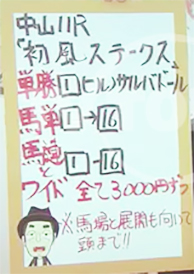 中山11R
「初風ステークス」
単勝1ヒルノサルバドール
馬単1→16
馬連1-16
と
ワイド 全て3000円ずつ
※馬場と展開も向いて
頭まで!!